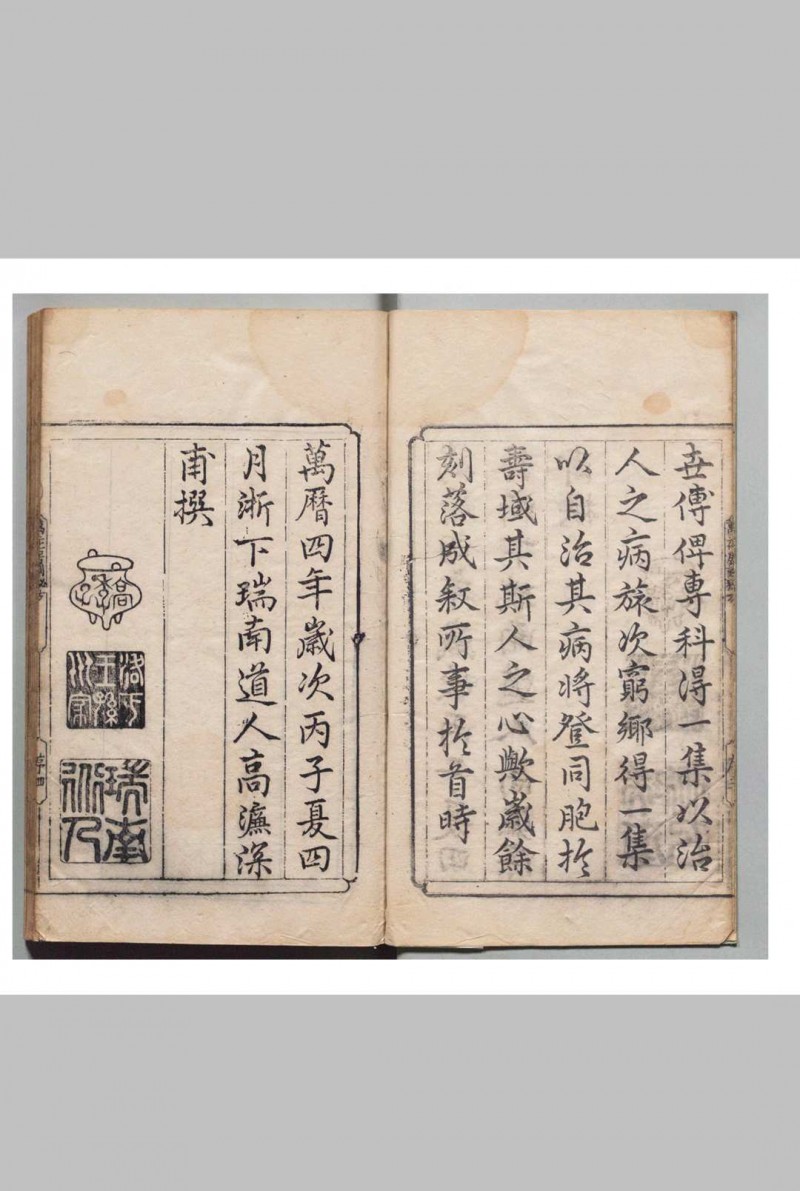 丗傳俾專科淂一集以治
人之病旅次窮鄉得一集
以自治其病將登同胞於
壽域其斯人之心歟歲餘
刻落成叙所事於首時
萬曆四年歲次丙子夏四
月浙下瑞南道人高濂深
甫撰
序四